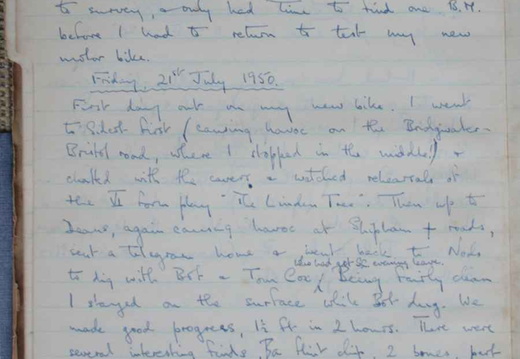 to survey, & only had time to find one B.M.
before I had to return to test my new
motor bike.
Friday, 21st July 1950.
First day out on my new bike. I went
to Sidcot first (causing havoc on the Bridgwater-
Bristol road, where I stopped in the middle!) &
chatted with the cavers & watched rehearsals of
the VI form play "The Linden Tree". Then up to
again causing havoc at Shipham + roads,
sent a telegram home & went back to
to dig with Bob & Tom Cox, Being fairly clean
who had got 24 evening leave.
I stayed on the surface while Bob dug. We
made good progress, 1½ ft in 2 hours. There were
several interesting finds, flint chip, 2 bones, part